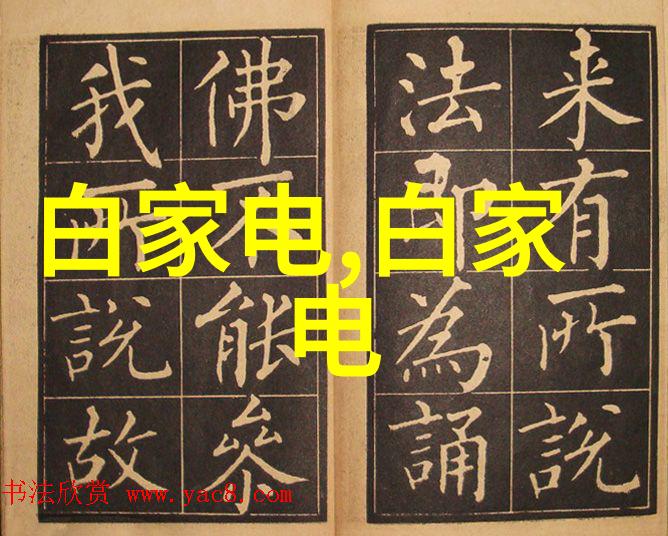 白家电,白家
电
来有所說
法即為誦
佛不能叅
我所說故
书法欣赏 www.yac8.com